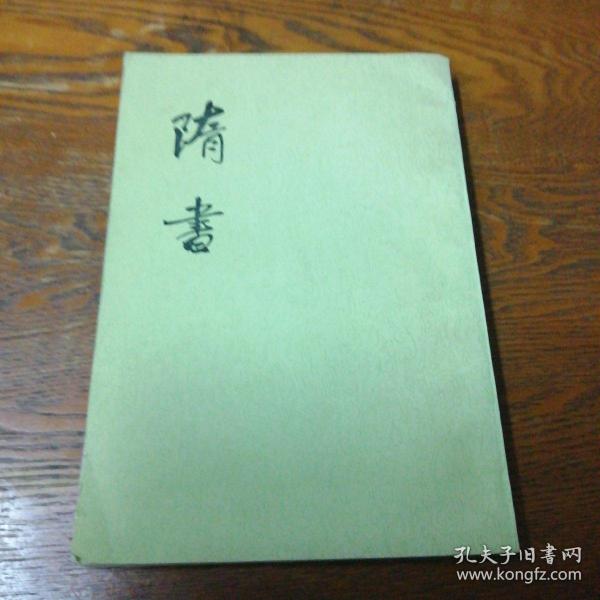 隋書
孔夫子旧书网
www.kongfz.com